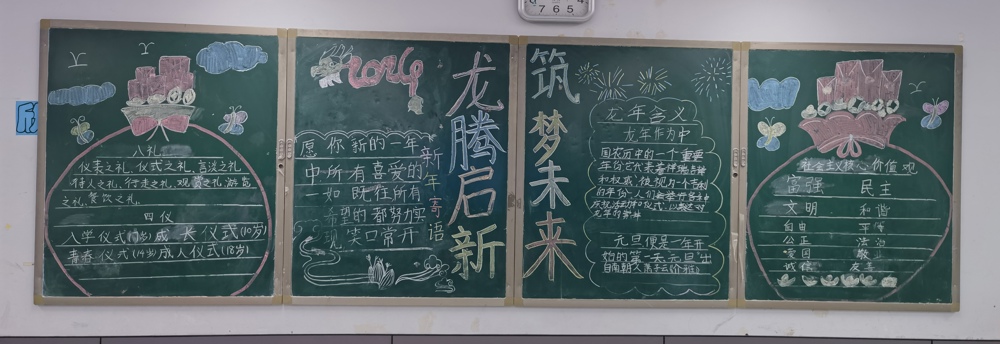 7 6 5
八礼
仪表之礼、仪式之礼、言谈之礼
待人之礼、行走之礼、观赏之礼、游览
之礼、餐饮之礼。
四仪
入学仪式(7岁)成长仪式(10岁)
青春仪式(14岁)成人仪式(18岁)
2024
愿你新的一年
中所有喜爱的
一如既往所有
希望的都努力实
现笑口常开
新年寄语
龙腾启新
筑梦未来
龙年含义
龙年作为中
国农历中的一个重要
年份它代表着祥瑞吉祥
和权威,被视为一个吉利
的年份,人们会举行各种
元旦便是一年开
始的第一天元旦"出
自南朝人
社会主义核心价值观
富强 民主
文明 和谐
自由 平等
公正 法治
爱国 敬业
诚信 友善